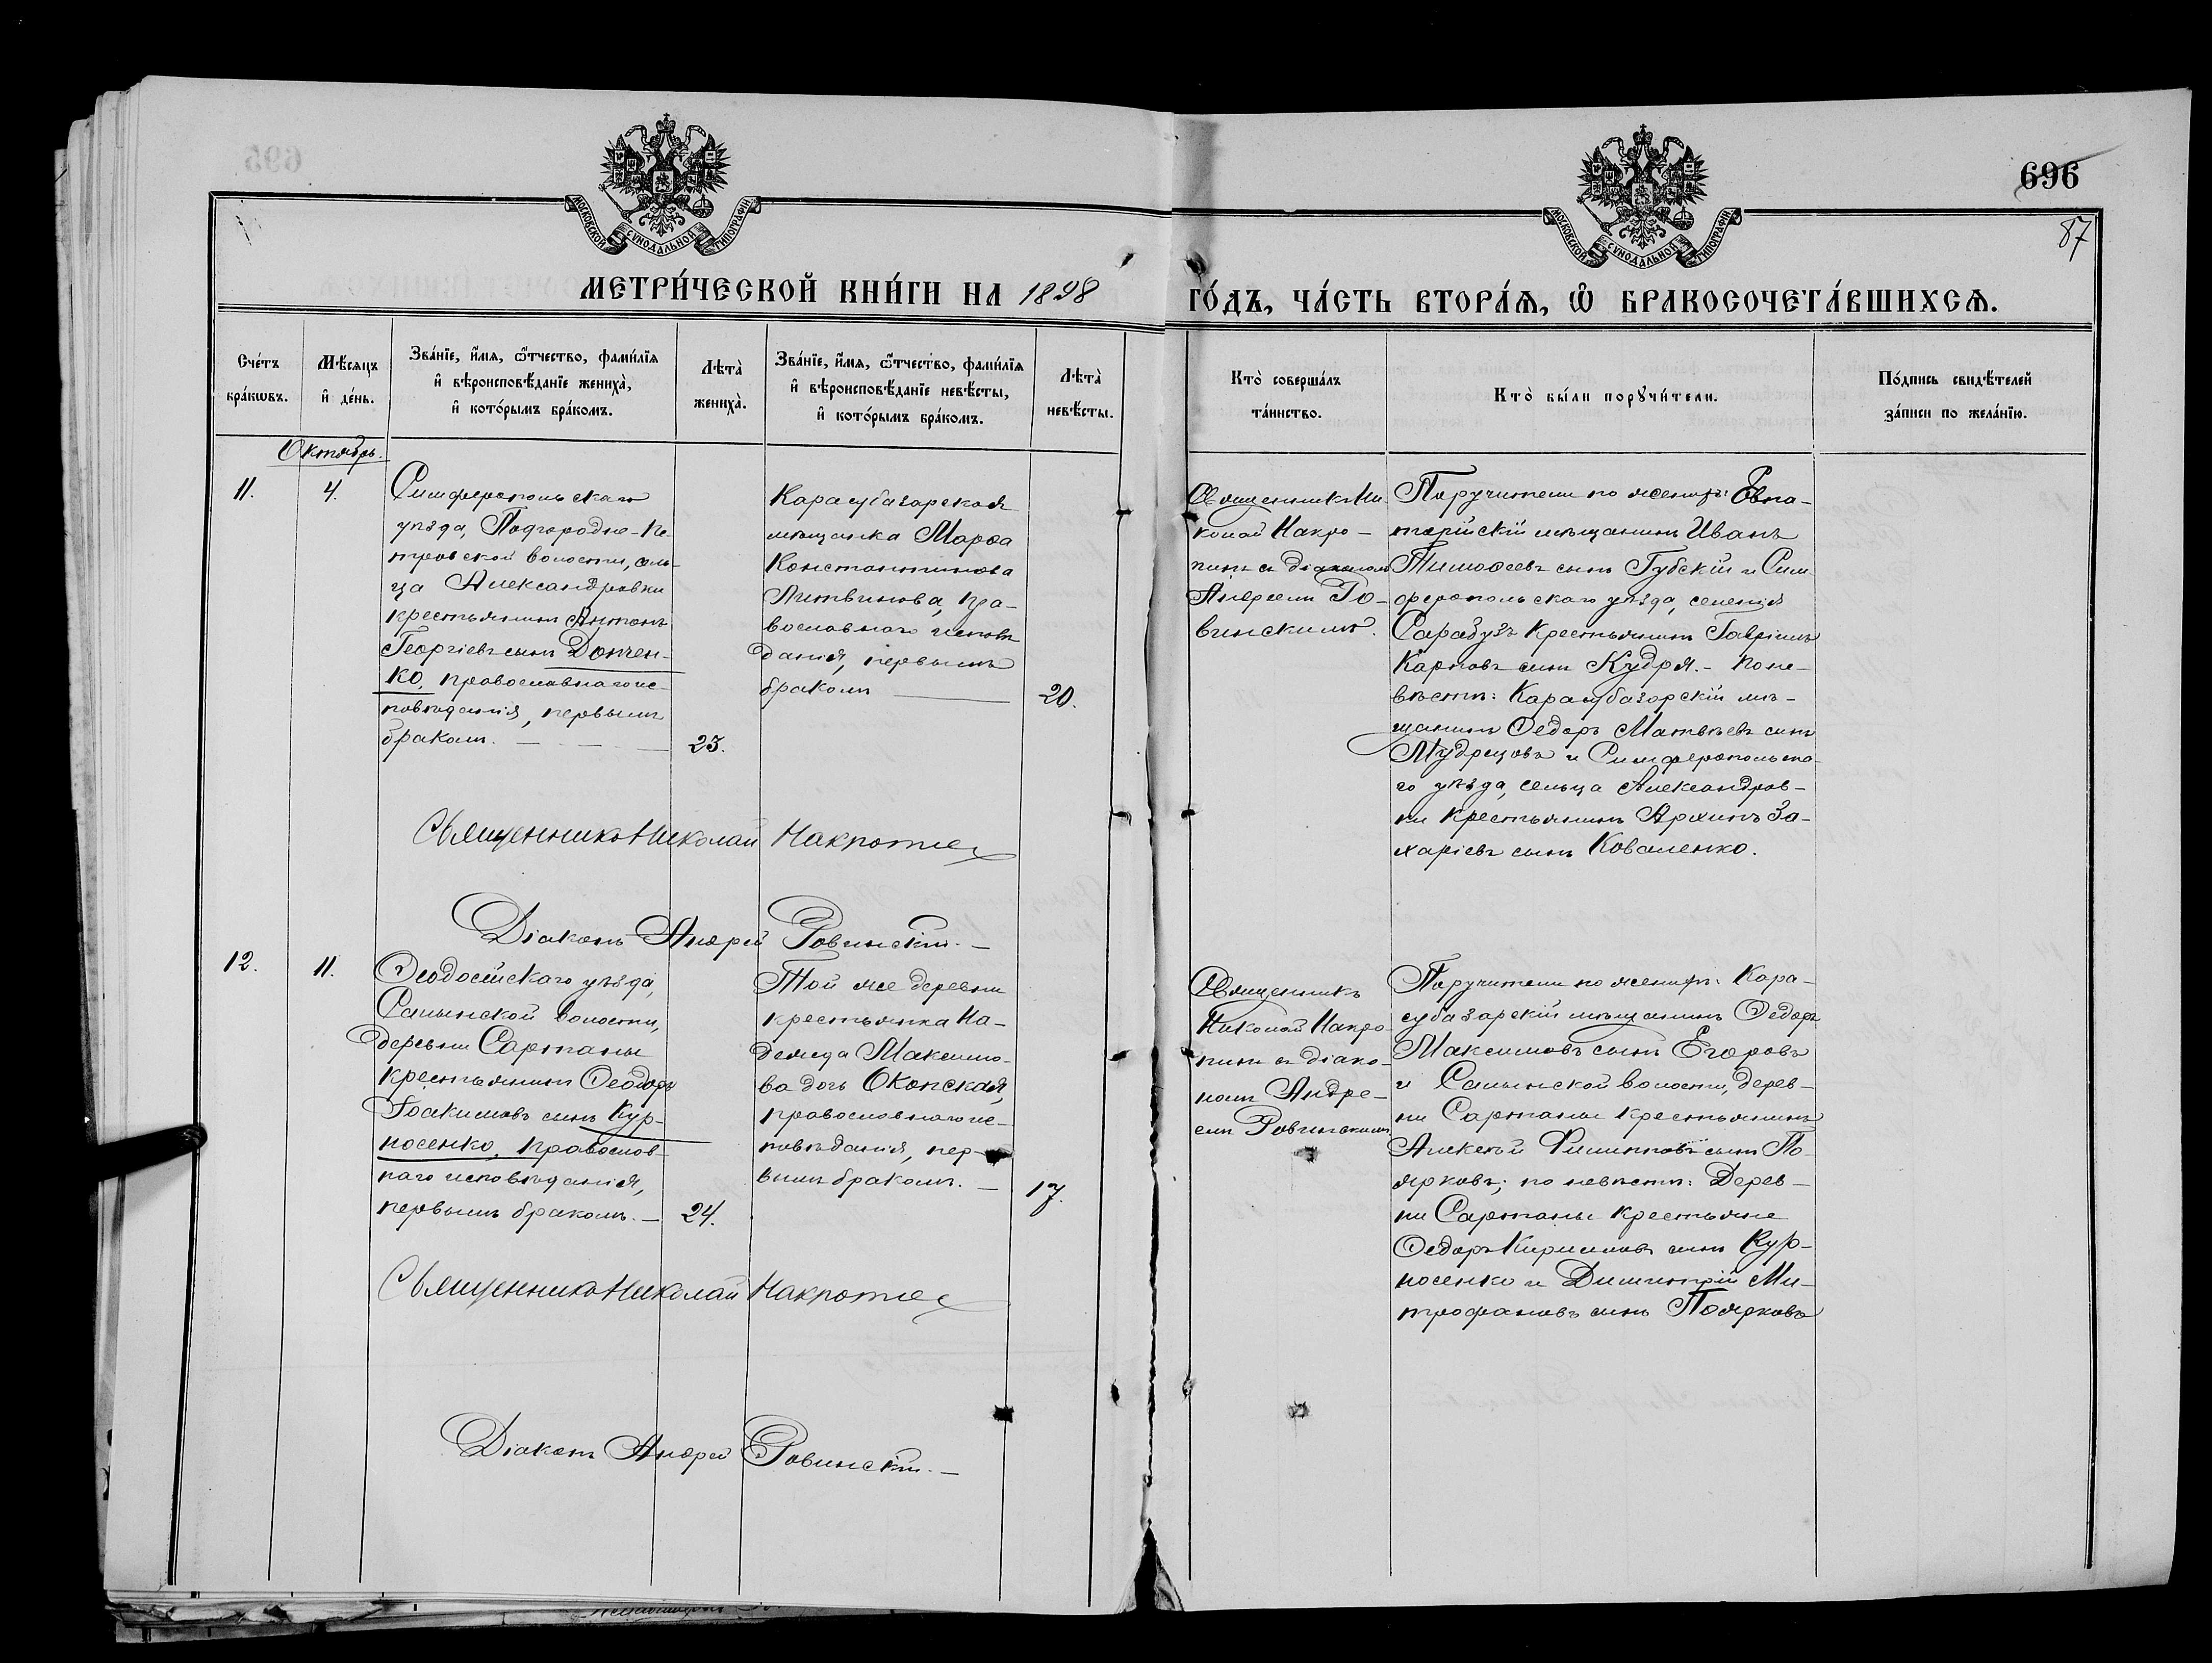 696
87
МОСКОВСКОЙ СѴНОДАЛЬНОЙ ТИПОГРАФІИ
МОСКОВСКОЙ СѴНОДАЛЬНОЙ ТИПОГРАФІИ
МЕТРИ́ЧЕСКОЙ КНИ́ГИ НА 1898
ГО́ДЪ, ЧА́СТЬ ВТОРА́Ѧ, Ѽ БРАКОСОЧЕТА́ВШИХСѦ.
Сче́тъ
бра́кѡвъ.
Мѣ́сяцъ
и҆ де́нь.
Зва́нїе, и҆́мя, ѻ҆́тчество, фами́лїя
и҆ вѣроисповѣ́данїе жениха̀,
и҆ кото́рымъ бра́комъ.
Лѣта̀
жениха̀.
Зва́нїе, и҆́мя, ѻ҆́тчество, фами́лїя
и҆ вѣроисповѣ́данїе невѣ́сты,
и҆ кото́рымъ бра́комъ.
Лѣта̀
невѣ́сты.
Кто̀ соверша́лъ
та́инство.
Кто̀ бы́ли порꙋчи́тели.
По́дпись свидѣ́телей
за́писи по жела́нїю.
Октябрь.
11.
4.
Симферопольскаго
уѣзда, Подгородне-Пе-
тровской волости, сель-
ца Александровки
крестьянинъ Антонъ
Георгіевъ сынъ Дончен-
ко, православнаго ис-
повѣданія, первымъ
бракомъ. —
23.
Карасубазарская
мѣщанка Марѳа
Константинова
Литвинова, пра-
вославнаго исповѣ
данія, первымъ
бракомъ —
20.
Священникъ Ни-
колай Накро-
пинъ съ діакономъ
Андреемъ Ро-
винскимъ.
Поручители по женихѣ: Евпа-
торійскій мѣщанинъ Иванъ
Тимоѳеевъ сынъ Губскій и Сим-
феропольскаго уѣзда, селенія
Сарабузъ крестьянинъ Гавріилъ
Карповъ сынъ Кудря. - по не-
вѣстѣ: Карасубазарскій мѣ-
щанинъ Ѳедоръ Матвѣевъ сынъ
Мудрецовъ и Симферопольска-
го уѣзда, сельца Александров-
ки крестьянинъ Архипъ За-
харіевъ сынъ Коваленко.
Священникъ Николай Накропи
Діаконъ Андрей Ровинскій. —
12.
11.
Ѳеодосійскаго уѣзда,
Салынской волости,
деревни Сартаны
крестьянинъ Ѳеодоръ
Іоакимовъ сынъ Кур-
носенко, православ-
наго исповѣданія,
первымъ бракомъ. —
24.
Той же деревни
крестьянка На-
дежда Максимо-
ва дочь Оконская,
православнаго ис-
повѣданія, пер-
вымъ бракомъ. —
17.
Священникъ
Николай Накро-
пинъ съ діако-
номъ Андре-
емъ Ровинскимъ
Поручители по женихѣ: Кара-
субазарскій мѣщанинъ Ѳедоръ
Максимовъ сынъ Егоровъ
и Салынской волости, дерев-
ни Сартаны крестьянинъ
Алексѣй Филипповъ сынъ По-
ярковъ; по невѣстѣ: Дерев-
ни Сартаны крестьяне
Ѳедоръ Кирилловъ сынъ Кур-
носенко и Димитрій Ми-
трофановъ сынъ Поярковъ
Священникъ Николай Накропи
Діаконъ Андрей Ровинскій. —